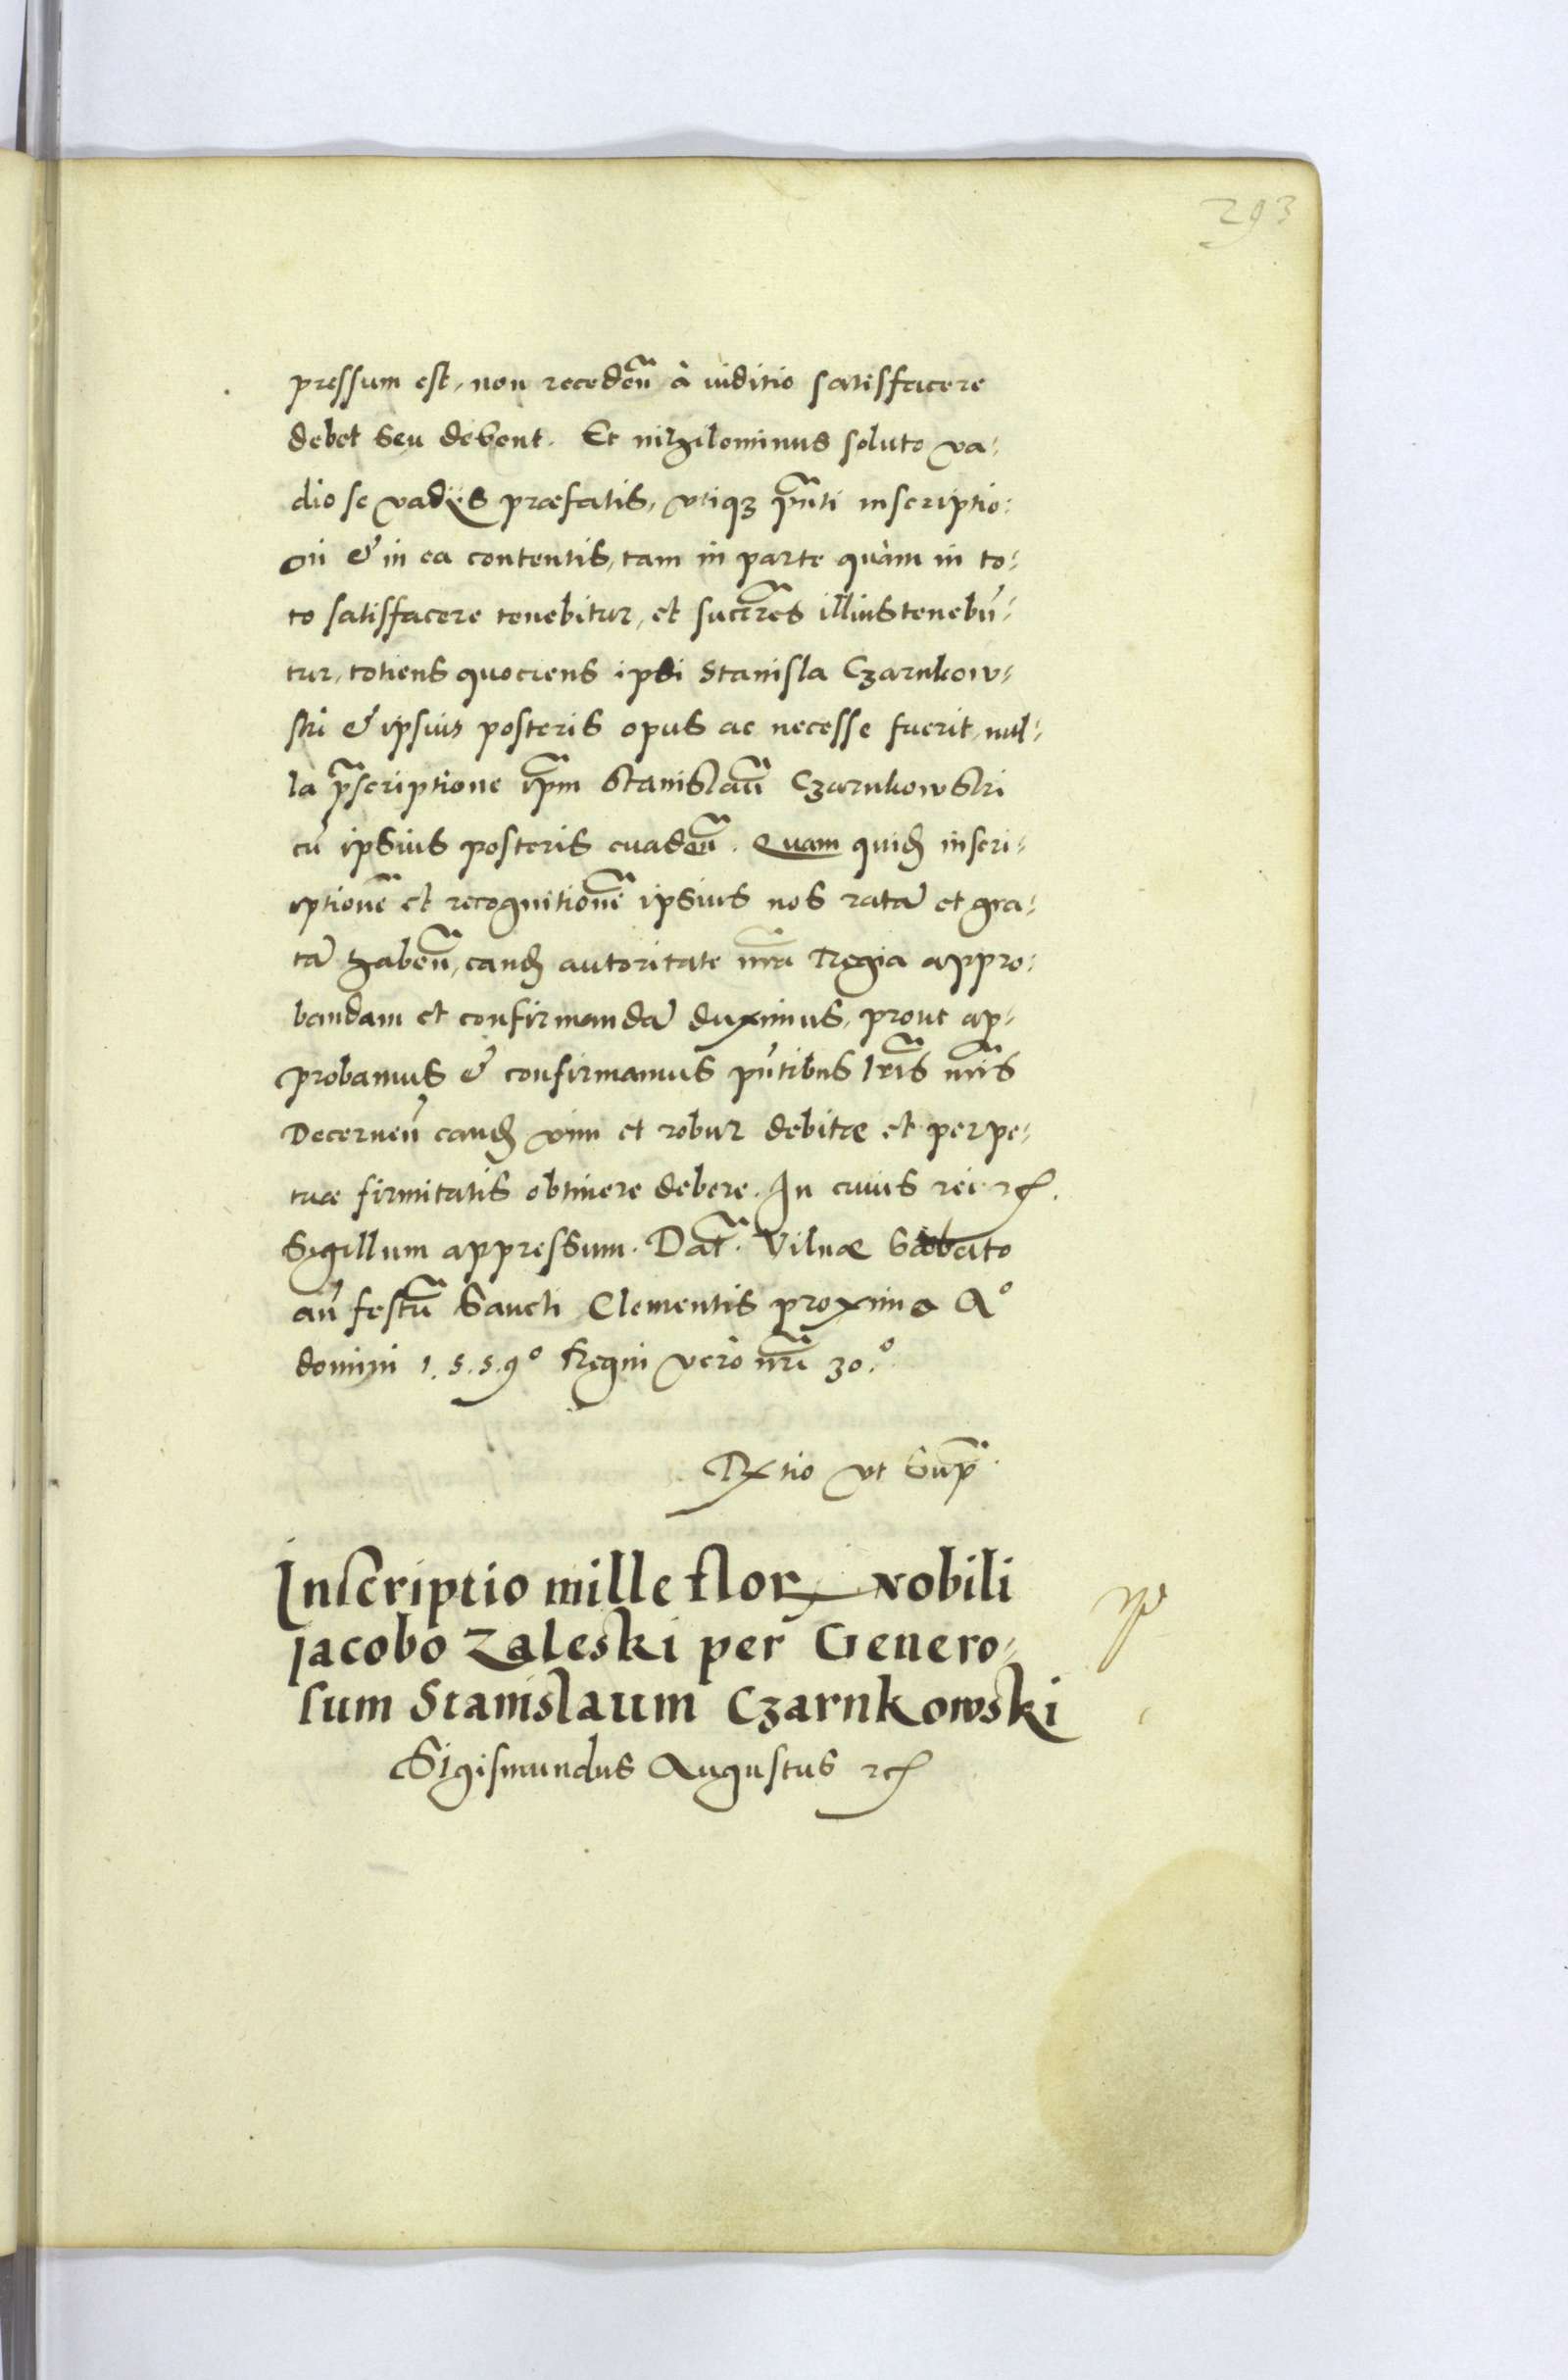 293
pressum est, non recedeñ à iuditio satisfacere
debet seu debent. Et nihilominus soluto va-
dio se vadijs præfatis, vtiq3 pñti inscriptio-
ni & in ea contentis, tam in parte quàm in to-
to satisfacere tenebitur, et succres illius tenebũ-
tur, totiens quociens ipsi Stanisla Czarnkow-
ski & ipsius posteris opus ac necesse fuerit, nul-
la p̃scriptione ip̃m Stanislaũ Czarnkowski
cũ ipsius posteris euadeñ. Quam quid̃ inscri-
iptionẽ et recognitionẽ ipsius nos ratã et gra-
tã habeñ, eand̃ autoritate nr̃a Regia appro-
bandam et confirmandã duximus, prout ap-
probamus & confirmamus pñtibus lr̃is nr̃is
Decerneñ eand̃ vim et robur debitæ et perpe-
tuæ firmitatis obtinere debere. In cuius rei etc.
Sigillum appressum. Dat̃. Vilnæ Sabbato
añ festũ Sancti Clementis proximo Aº
domini 1.5.5.9º Regni vero nr̃i 30.º
Rxtio vt Sup̃.
Inscriptio mille flor nobili
Jacobo Zaleski per Genero-
sum Stanislaum Czarnkowski
Sigismundus Augustus etc